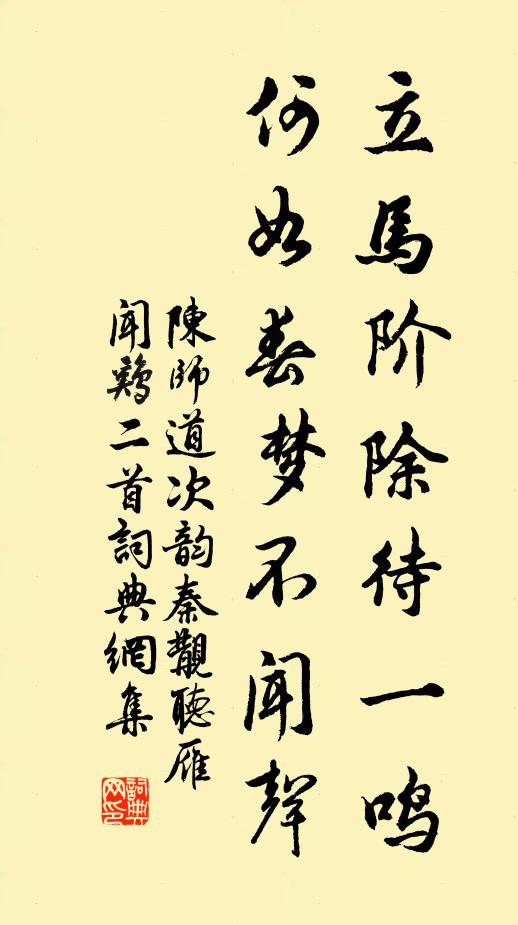 立馬阶除待一鸣
何如春梦不闻聲
陳師道次韵秦觀聽雁
闻鷄二首詞典網集
詞典
网印